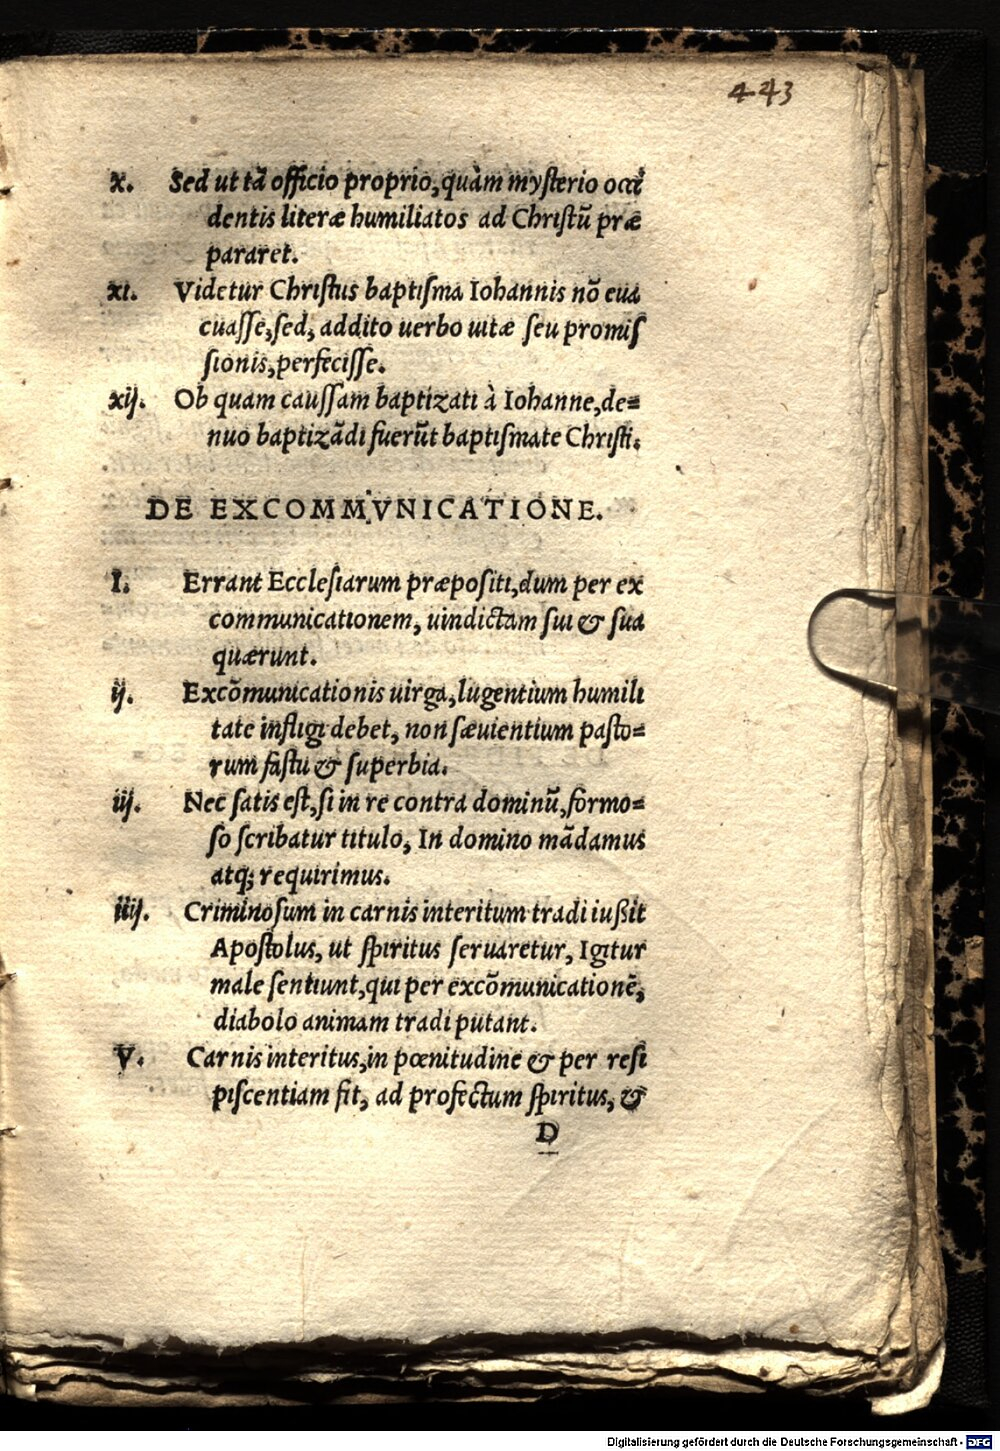 443
x. Sed ut tã officio proprio, quàm mysterio occi
dentis literæ humiliatos ad Christũ præ
pararet.
xi. Videtur Christus baptisma Iohannis nõ eua
cuasse, sed, addito uerbo uitæ seu promis
sionis, perfecisse.
xij. Ob quam caussam baptizati à Iohanne, de=
nuo baptizãdi fuerũt baptismate Christi.
DE EXCOMMVNICATIONE.
I. Errant Ecclesiarum præpositi, dum per ex
communicationem, uindictam sui & sua
quærunt.
ij. Excõmunicationis uirga, lugentium humili
tate infligi debet, non sæuientium pasto=
rum fastu & superbia.
iij. Nec satis est, si in re contra dominũ, formo=
so scribatur titulo, In domino mãdamus
atq; requirimus.
iiij. Criminosum in carnis interitum tradi iußit
Apostolus, ut spiritus seruaretur, Igitur
male sentiunt, qui per excõmunicationẽ,
diabolo animam tradi putant.
V. Carnis interitus, in pœnitudine & per resi
piscentiam fit, ad profectum spiritus, &
D
Digitalisierung gefördert durch die Deutsche Forschungsgemeinschaft - DFG